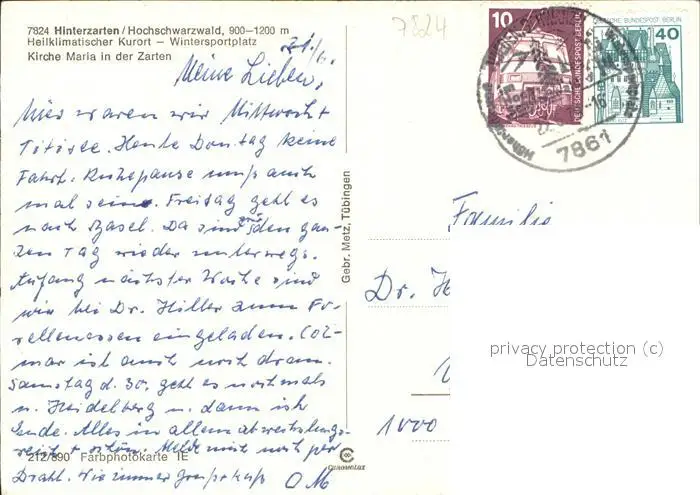 7824 Hinterzarten / Hochschwarzwald, 900–1200 m
Heilklimatischer Kurort – Wintersportplatz
Kirche Maria in der Zarten
7824
Meine Lieben,
Hier waren wir Mittwoch +
Titisee. Heute Donstag keine
Fahrt. Ruhepause muß auch
mal sein. Freitag geht es
nach Basel. Da sind wir den gan-
zen Tag wieder unterwegs.
Anfang nächster Woche sind
wir bei Dr. Hiller zum Fo-
rellenessen eingeladen. Col-
mar ist auch noch dran.
Samstag d. 30. geht es nochmals
n. Heidelberg u. dann ist
Ende. Alles in allem abwechslungs-
reich + schön. Melde mich noch per
Draht. Wie immer Gruß + Kuß
O M
212/890 Farbphotokarte IE
Gebr. Metz, Tübingen
10
DEUTSCHE BUNDESPOST BERLIN
DEUTSCHE BUNDESPOST BERLIN
40
7861
Familie
Dr. H
1000
privacy protection (c)
Datenschutz